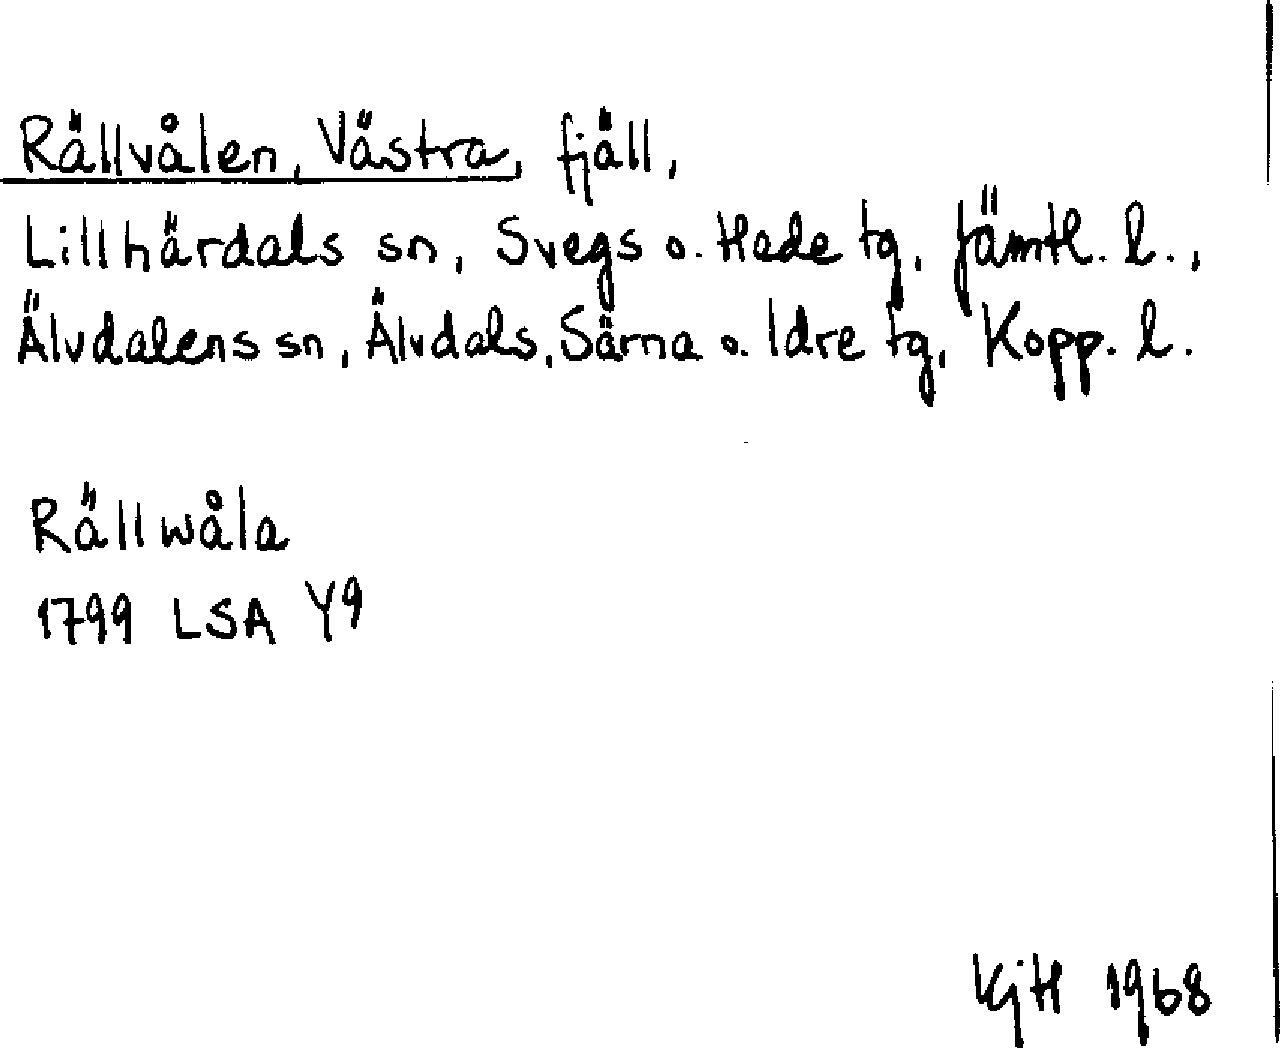 Rällvålen, Västra, fjäll,
Lillhärdals sn, Svegs o. Hede tg, Jämtl. l.,
Älvdalens sn, Älvdals, Särna o. Idre tg, Kopp. l.
Rällwåla
1799 LSA Y9
KjH 1968